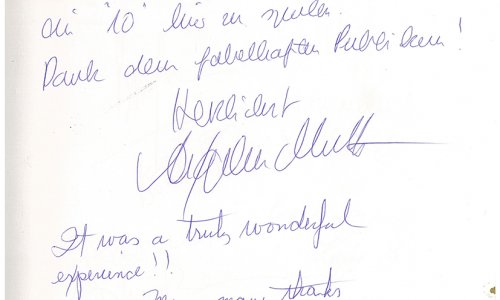 die "10" hier zu spielen.
Dank dem fabelhaften Publikum!
Herzlichst
It was a truly wonderful
experience!!
many thanks